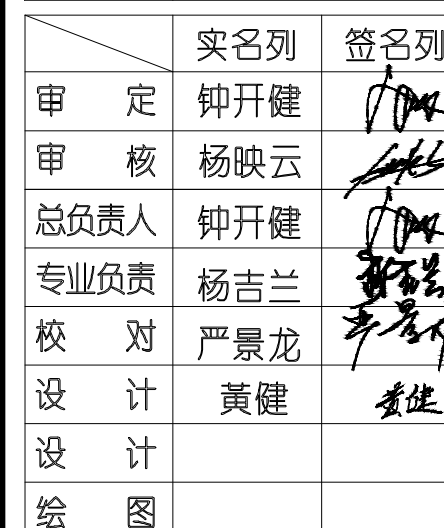 实名列 签名列
审 定 钟开健
审 核 杨映云
总负责人 钟开健
专业负责 杨吉兰
校 对 严景龙
设 计 黄健 黄健
设 计
绘 图